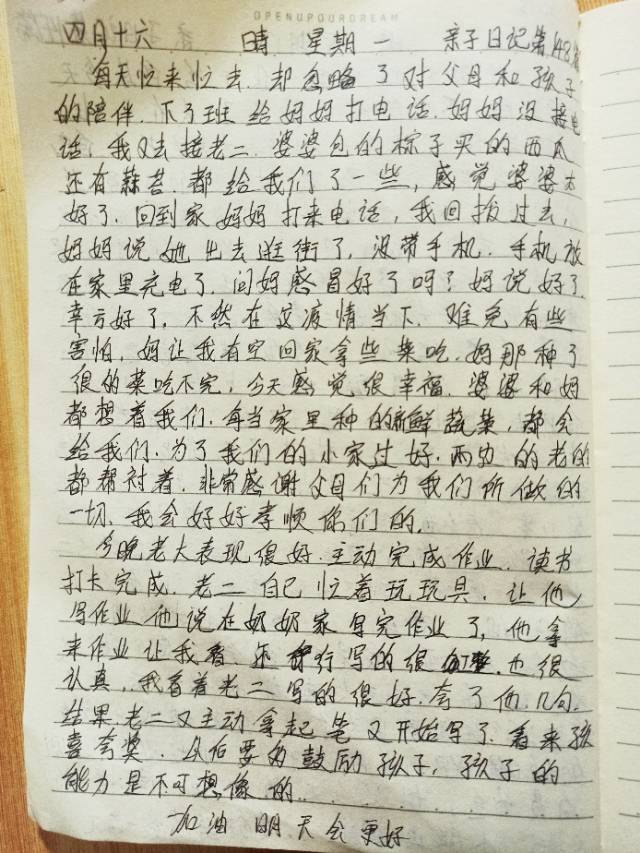 OPENUPOURDREAM
四月十六 晴 星期一 亲子日记第148篇
每天忙来忙去.却忽略了对父母和孩子
的陪伴.下了班给妈妈打电话.妈妈没接电
话,我又去接老二.婆婆包的粽子买的西瓜
还有蒜苔.都给我们了一些,感觉婆婆太
好了.回到家妈妈打来电话,我回拨过去,
妈妈说她出去逛街了,没带手机.手机放
在家里充电了.问妈感冒好了吗?妈说好了.
幸亏好了,不然在这疫情当下.难免有些
害怕.妈让我有空回家拿些菜吃.妈那种了
很的菜吃不完,今天感觉很幸福.婆婆和妈
都想着我们.每当家里种的新鲜蔬菜,都会
给我们.为了我们的小家过好.两边的老的
都帮衬着.非常感谢父母们为我们所做的
一切.我会好好孝顺你们的.
今晚老大表现很好.主动完成作业.读书
打卡完成.老二自己忙着玩玩具.让他
写作业他说在奶奶家写完作业了,他拿
来作业让我看.还行写的很工整.也很
认真.我看着老二写的很好.夸了他几句.
结果.老二又主动拿起笔又开始写了.看来孩
喜夸奖.以后要多鼓励孩子,孩子的
能力是不可想像的..
加油 明天会更好